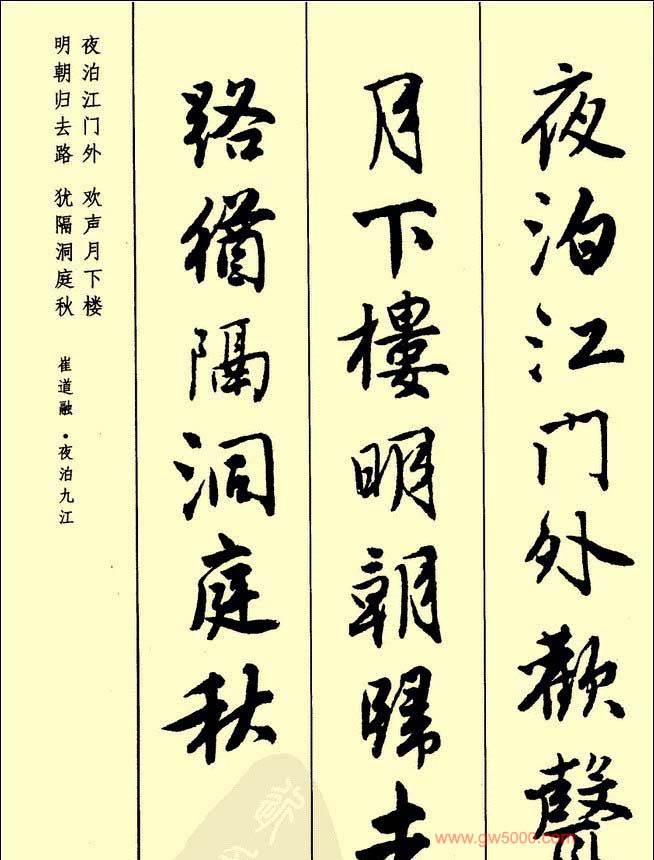 夜泊江门外歡聲
月下樓明朝歸去
路猶隔洞庭秋
夜泊江门外 欢声月下楼
明朝归去路 犹隔洞庭秋
崔道融·夜泊九江
www.gw5000.com